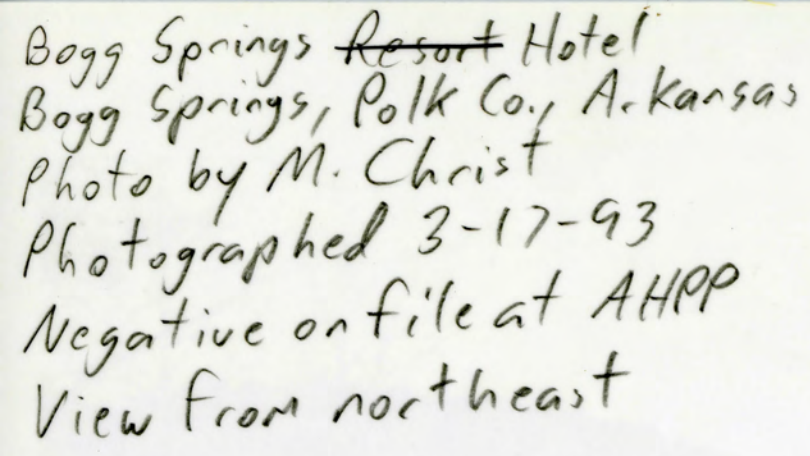 Bogg Springs Resort Hotel
Bogg Springs, Polk Co., Arkansas
Photo by M. Christ
Photographed 3-17-93
Negative on file at AHPP
View from northeast